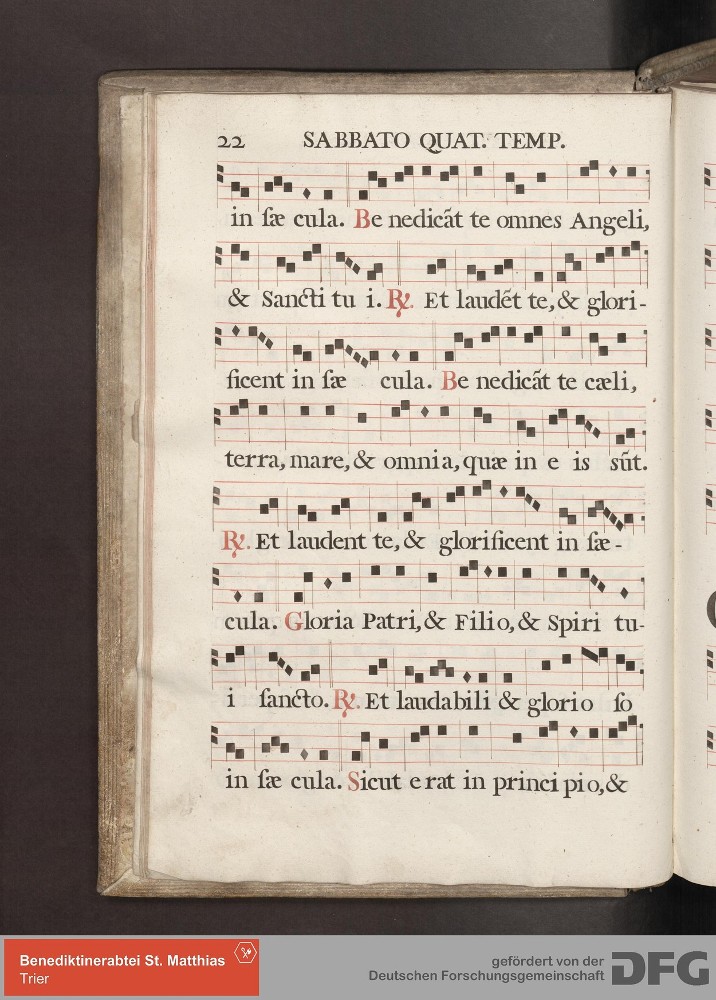 22 SABBATO QUAT. TEMP.
in ſæ cula. Be nedicãt te omnes Angeli,
& Sancti tu i. ℟. Et laudẽt te, & glori-
ficent in ſæ cula. Be nedicãt te cæli,
terra, mare, & omnia, quæ in e is sũt.
℟. Et laudent te, & glorificent in ſæ-
cula. Gloria Patri, & Filio, & Spiri tu-
i ſancto. ℟. Et laudabili & glorio ſo
in ſæ cula. Sicut erat in princi pio, &
Benediktinerabtei St. Matthias
Trier
gefördert von der
Deutschen Forschungsgemeinschaft
DFG